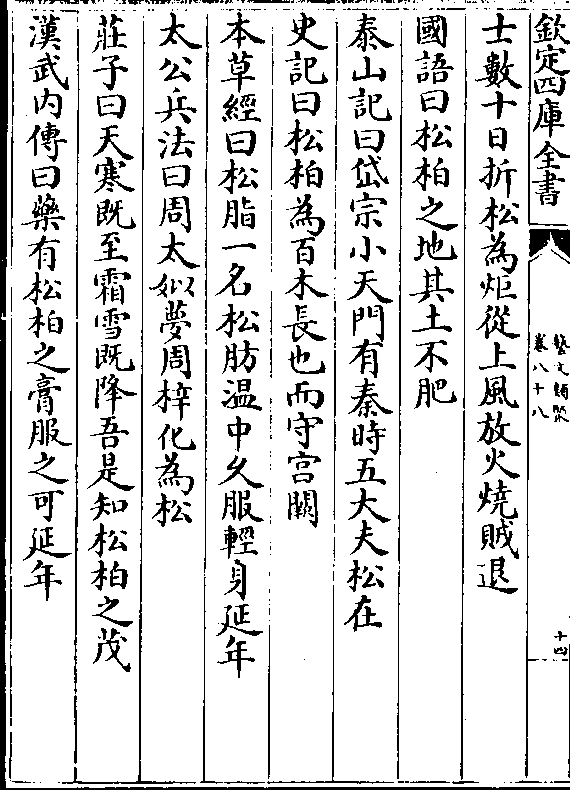 欽定四庫全書
藝文類聚
卷八十八
十四
士數十日折松為炬從上風放火燒賊退
國語曰松柏之地其土不肥
泰山記曰岱宗小天門有秦時五大夫松在
史記曰松柏為百木長也而守宫闕
本草經曰松脂一名松肪温中久服輕身延年
太公兵法曰周太姒夢周梓化為松
莊子曰天寒既至霜雪既降吾是知松柏之茂
漢武内傳曰藥有松柏之膏服之可延年